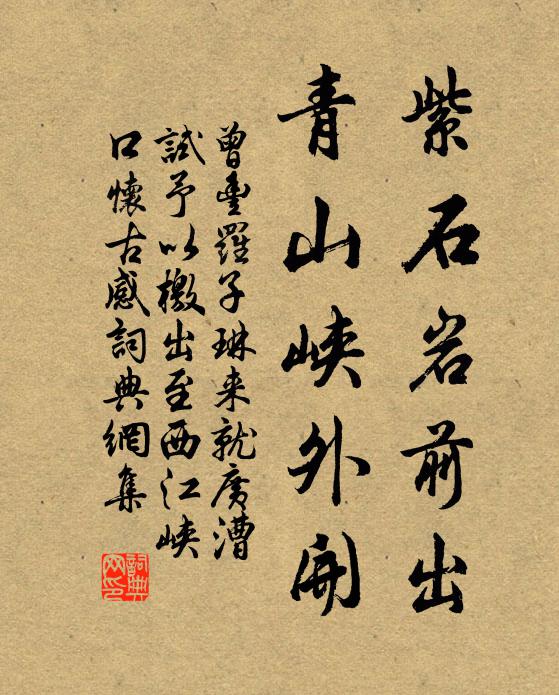 紫石岩前出
青山峡外開
曾豊羅子琳来就廣漕
試予以檄出至西江峡
口懷古感詞典網集
詞典网印